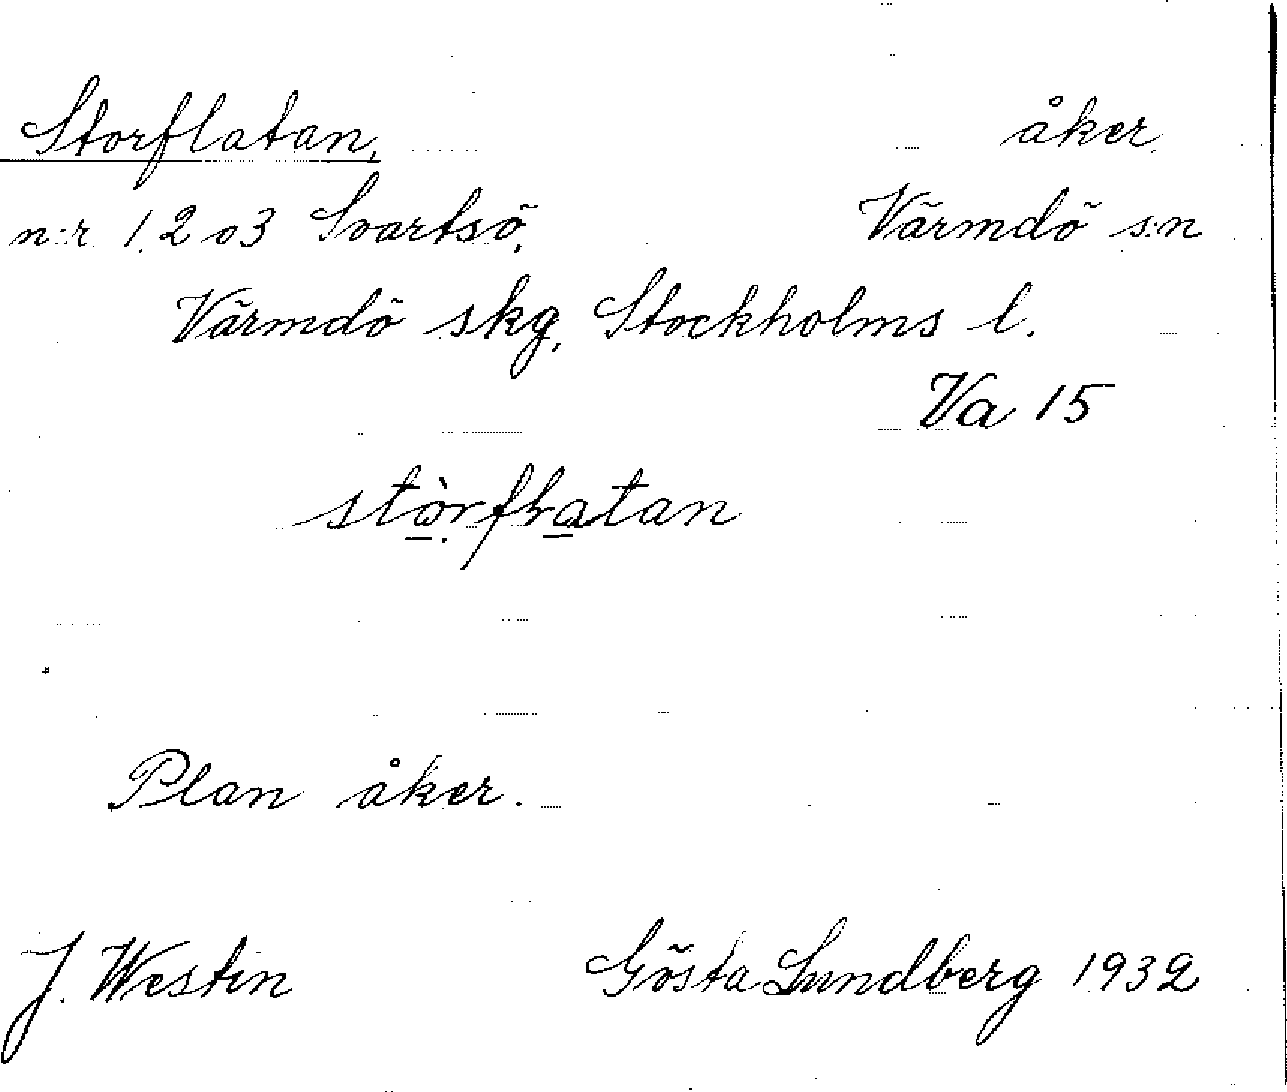 Storflatan, åker
n:r 1, 2 o 3 Svartsö, Värmdö s:n
Värmdö skg, Stockholms l.
Va 15
Plan åker.
J. Westin Gösta Lundberg 1932